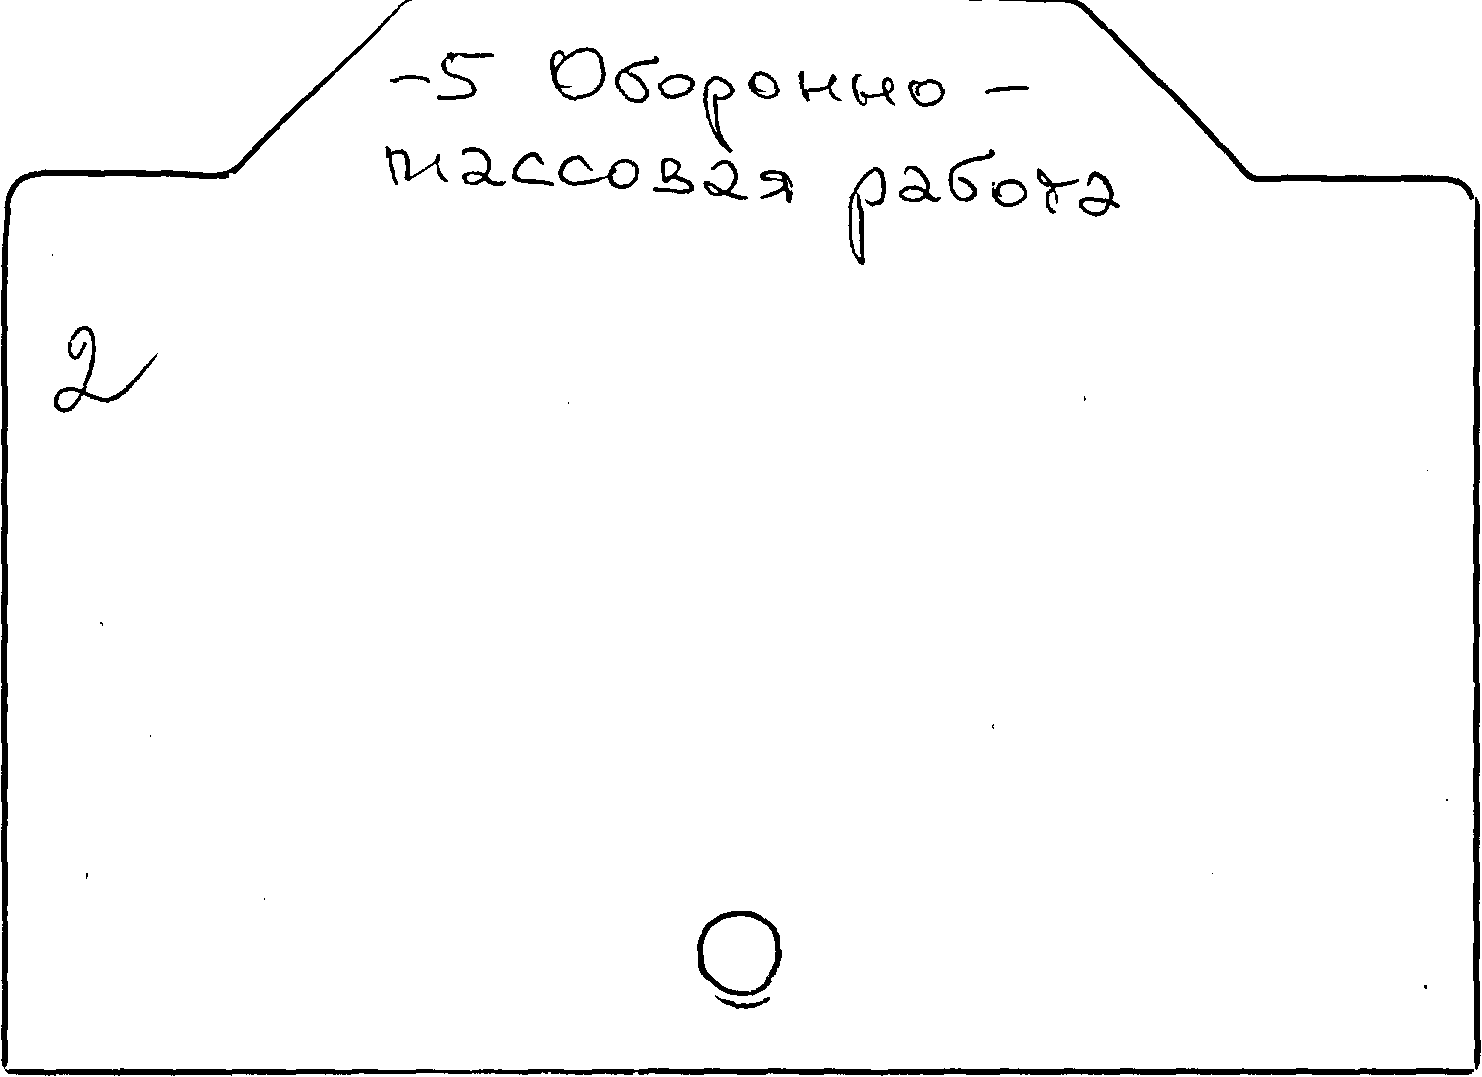 -5 Оборонно-
массовая работа
2